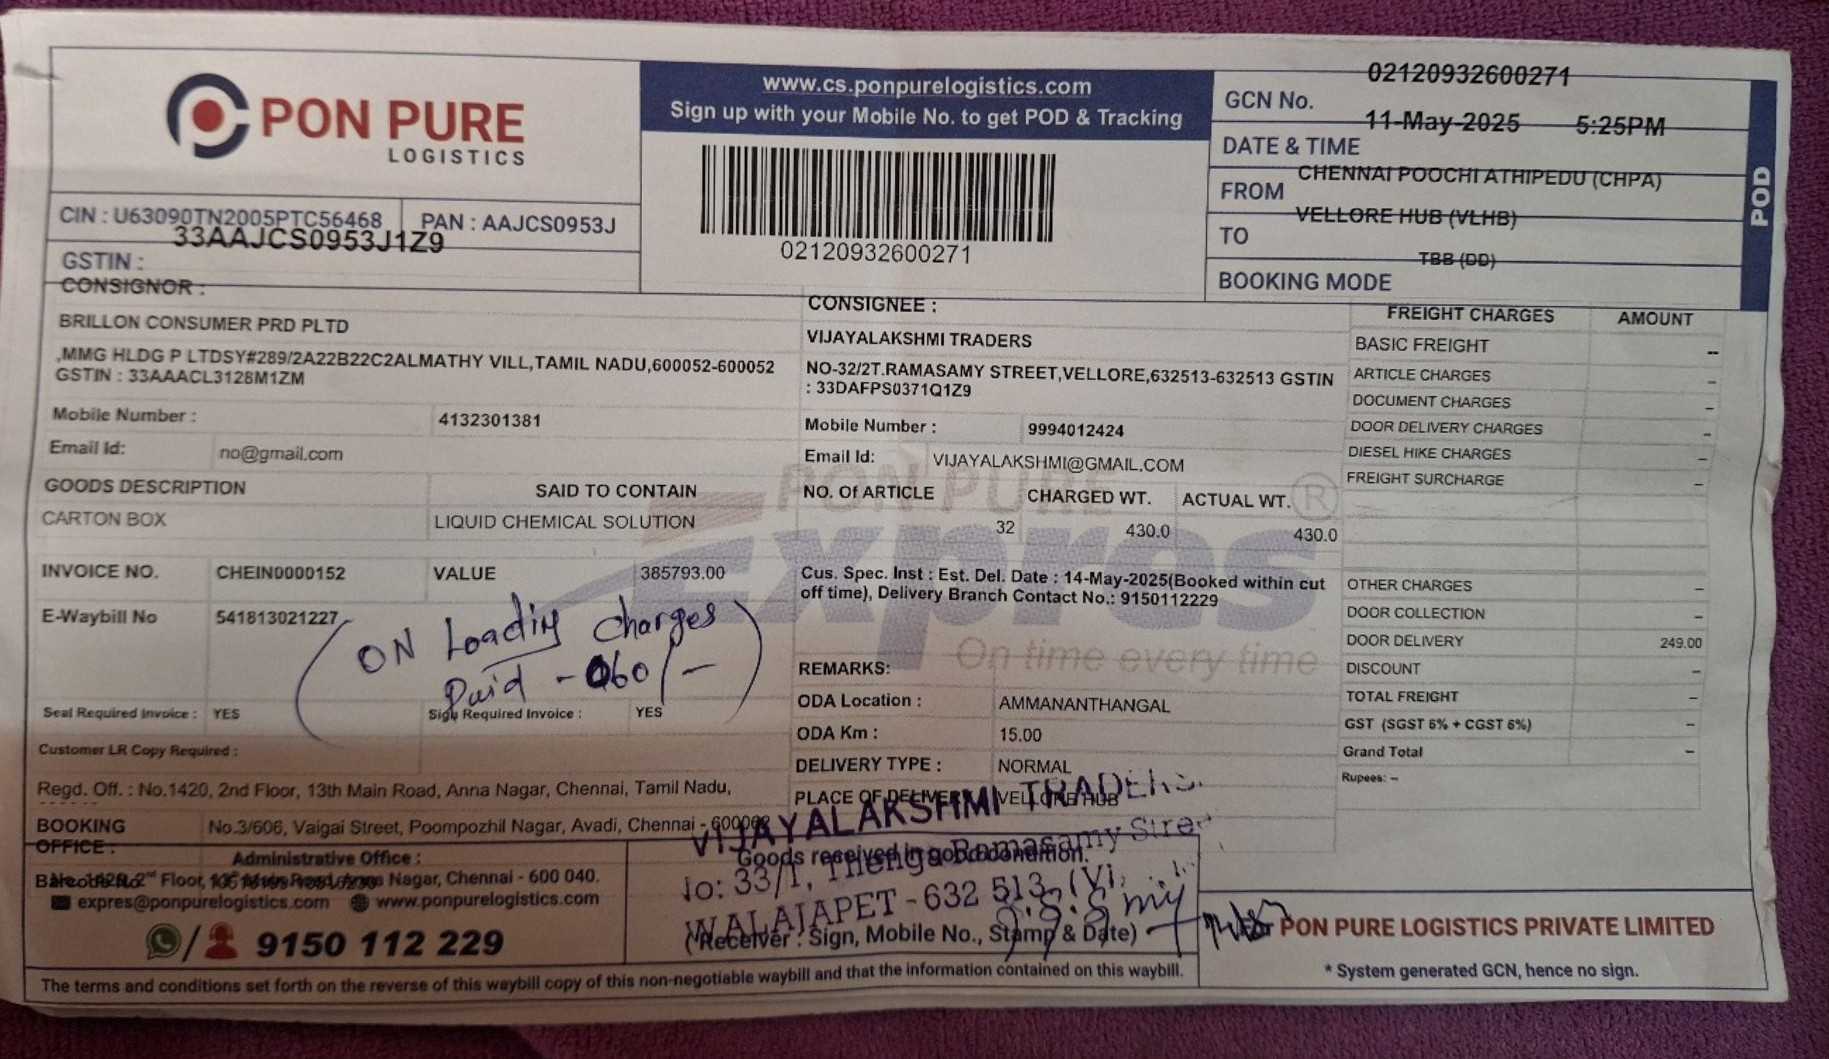 PON PURE
LOGISTICS
www.cs.ponpurelogistics.com
Sign up with your Mobile No. to get POD & Tracking
02120932600271
GCN No. 02120932600271
DATE & TIME 11-May-2025 5:25PM
FROM CHENNAI POOCHI ATHIPEDU (CHPA)
TO VELLORE HUB (VLHB)
BOOKING MODE TBB (DD)
POD
CIN : U63090TN2005PTC56468 PAN : AAJCS0953J
GSTIN : 33AAJCS0953J1Z9
CONSIGNOR :
BRILLON CONSUMER PRD PLTD
,MMG HLDG P LTDSY#289/2A22B22C2ALMATHY VILL,TAMIL NADU,600052-600052
GSTIN : 33AAACL3128M1ZM
Mobile Number : 4132301381
Email Id: no@gmail.com
CONSIGNEE :
VIJAYALAKSHMI TRADERS
NO-32/2T.RAMASAMY STREET,VELLORE,632513-632513 GSTIN
: 33DAFPS0371Q1Z9
Mobile Number : 9994012424
Email Id: VIJAYALAKSHMI@GMAIL.COM
GOODS DESCRIPTION SAID TO CONTAIN
CARTON BOX LIQUID CHEMICAL SOLUTION
NO. Of ARTICLE CHARGED WT. ACTUAL WT.
32 430.0 430.0
PON PURE
Expres
On time every time
INVOICE NO. CHEIN0000152 VALUE 385793.00
E-Waybill No 541813021227
ON Loading Charges
Paid - 060/-
Seal Required Invoice : YES Sign Required Invoice : YES
Customer LR Copy Required :
Cus. Spec. Inst : Est. Del. Date : 14-May-2025(Booked within cut
off time), Delivery Branch Contact No.: 9150112229
REMARKS:
ODA Location : AMMANANTHANGAL
ODA Km : 15.00
DELIVERY TYPE : NORMAL
PLACE OF DELIVERY VELLORE HUB
FREIGHT CHARGES AMOUNT
BASIC FREIGHT --
ARTICLE CHARGES –
DOCUMENT CHARGES –
DOOR DELIVERY CHARGES –
DIESEL HIKE CHARGES –
FREIGHT SURCHARGE –
OTHER CHARGES –
DOOR COLLECTION –
DOOR DELIVERY 249.00
DISCOUNT –
TOTAL FREIGHT –
GST (SGST 6% + CGST 6%) –
Grand Total –
Rupees: –
Regd. Off. : No.1420, 2nd Floor, 13th Main Road, Anna Nagar, Chennai, Tamil Nadu,
BOOKING OFFICE : No.3/606, Vaigai Street, Poompozhil Nagar, Avadi, Chennai -
Administrative Office :
2nd Floor, Nagar, Chennai - 600 040.
expres@ponpurelogistics.com www.ponpurelogistics.com
9150 112 229
VIJAYALAKSHMI TRADERS
Goods received in good condition.
No: 33/1, Thenga Ramasamy Street
WALAJAPET - 632 513,
(Receiver : Sign, Mobile No., Stamp & Date)
The terms and conditions set forth on the reverse of this waybill copy of this non-negotiable waybill and that the information contained on this waybill.
PON PURE LOGISTICS PRIVATE LIMITED
* System generated GCN, hence no sign.